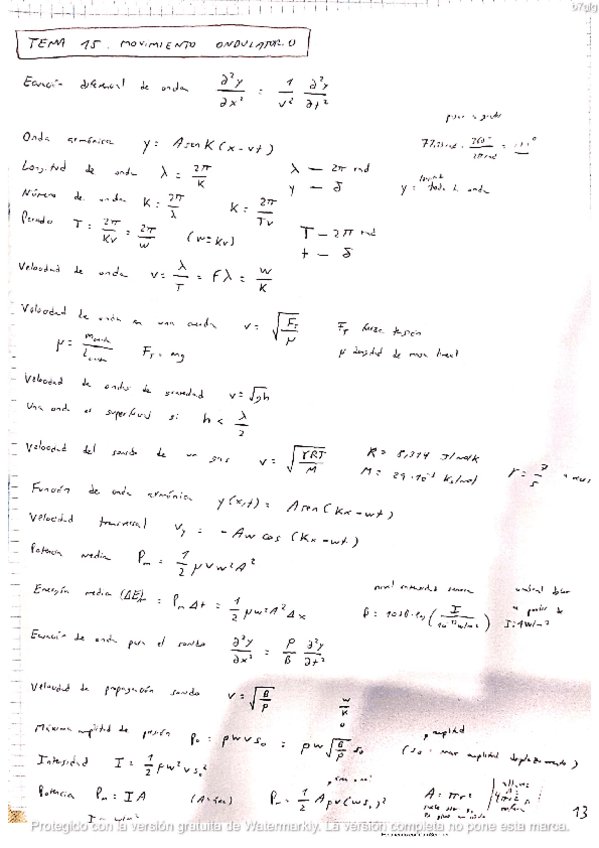 b7glg
TEMA 15. MOVIMIENTO ONDULATORIO
Ecuación diferencial de onda ∂²y/∂x² = 1/v² ∂²y/∂t²
Onda armónica y = A sen K (x - vt)
Longitud de onda λ = 2π/K λ — 2π rad
y — δ
Número de onda K = 2π/λ K = 2π/Tv
Periodo T = 2π/Kv = 2π/w (w = Kv) T — 2π rad
t — δ
Velocidad de onda v = λ/T = Fλ = w/K
Velocidad de onda en una cuerda v = √(F_T/μ) F_T fuerza tensión
μ = m cuerda/L cuerda F_T = mg μ densidad de masa lineal
Velocidad de ondas de gravedad v = √gh
Una onda es superficial si h < λ/2
Velocidad del sonido de un gas v = √(γRT/M) R = 8,314 J/molK
M = 29·10⁻³ Kg/mol γ = 7/5
Función de onda armónica y(x,t) = A sen (Kx - wt)
Velocidad transversal v_y = - Aw cos (Kx - wt)
Potencia media P_m = 1/2 μ v w² A²
Energía media (ΔE)_m = P_m Δt = 1/2 μ w² A² Δx
nivel intensidad sonora
β = 10dB·lg (I/10⁻¹² w/m²)
umbral dolor
a partir de
I = 1 W/m²
Ecuación de onda para el sonido ∂²y/∂x² = ρ/B ∂²y/∂t²
Velocidad de propagación sonido v = √(B/ρ)
w/K
Máxima amplitud de presión P₀ = ρ w v s₀ = ρ w √(B/ρ) s₀ (s₀ = max amplitud desplazamiento)
amplitud
Intensidad I = 1/2 ρ w² v s₀²
Potencia P_m = I A (A = área) P_m = 1/2 A ρ v (w s₀)² A = πr²
13
Protegido con la versión gratuita de Watermarkly. La versión completa no pone esta marca.